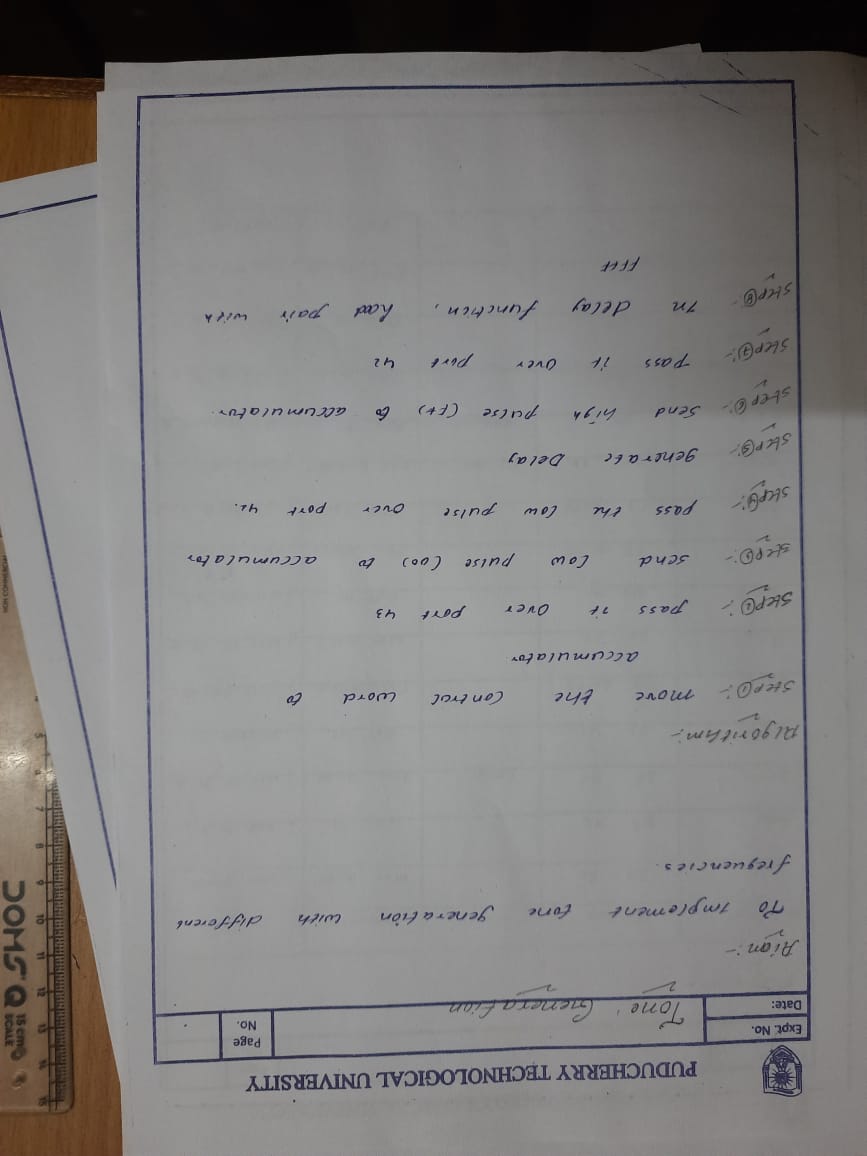 PUDUCHERRY TECHNOLOGICAL UNIVERSITY
Expt. No.
Date:
Tone Generation
Page
No.
Aim:-
To implement tone generation with different
frequencies.
Algorithm:-
Step ①:- move the control word to
accumulator
Step ②:- pass it over port 43
Step ③:- send low pulse (00) to accumulator
Step ④:- pass the low pulse over port 42.
Step ⑤:- generate Delay
Step ⑥:- send high pulse (FF) to accumulator.
Step ⑦:- pass it over port 42
Step ⑧:- In delay function, load pair with
FFFF
DOMS
15 cm
SCALE
15
14
13
12
11
10
9
8
7
6
5